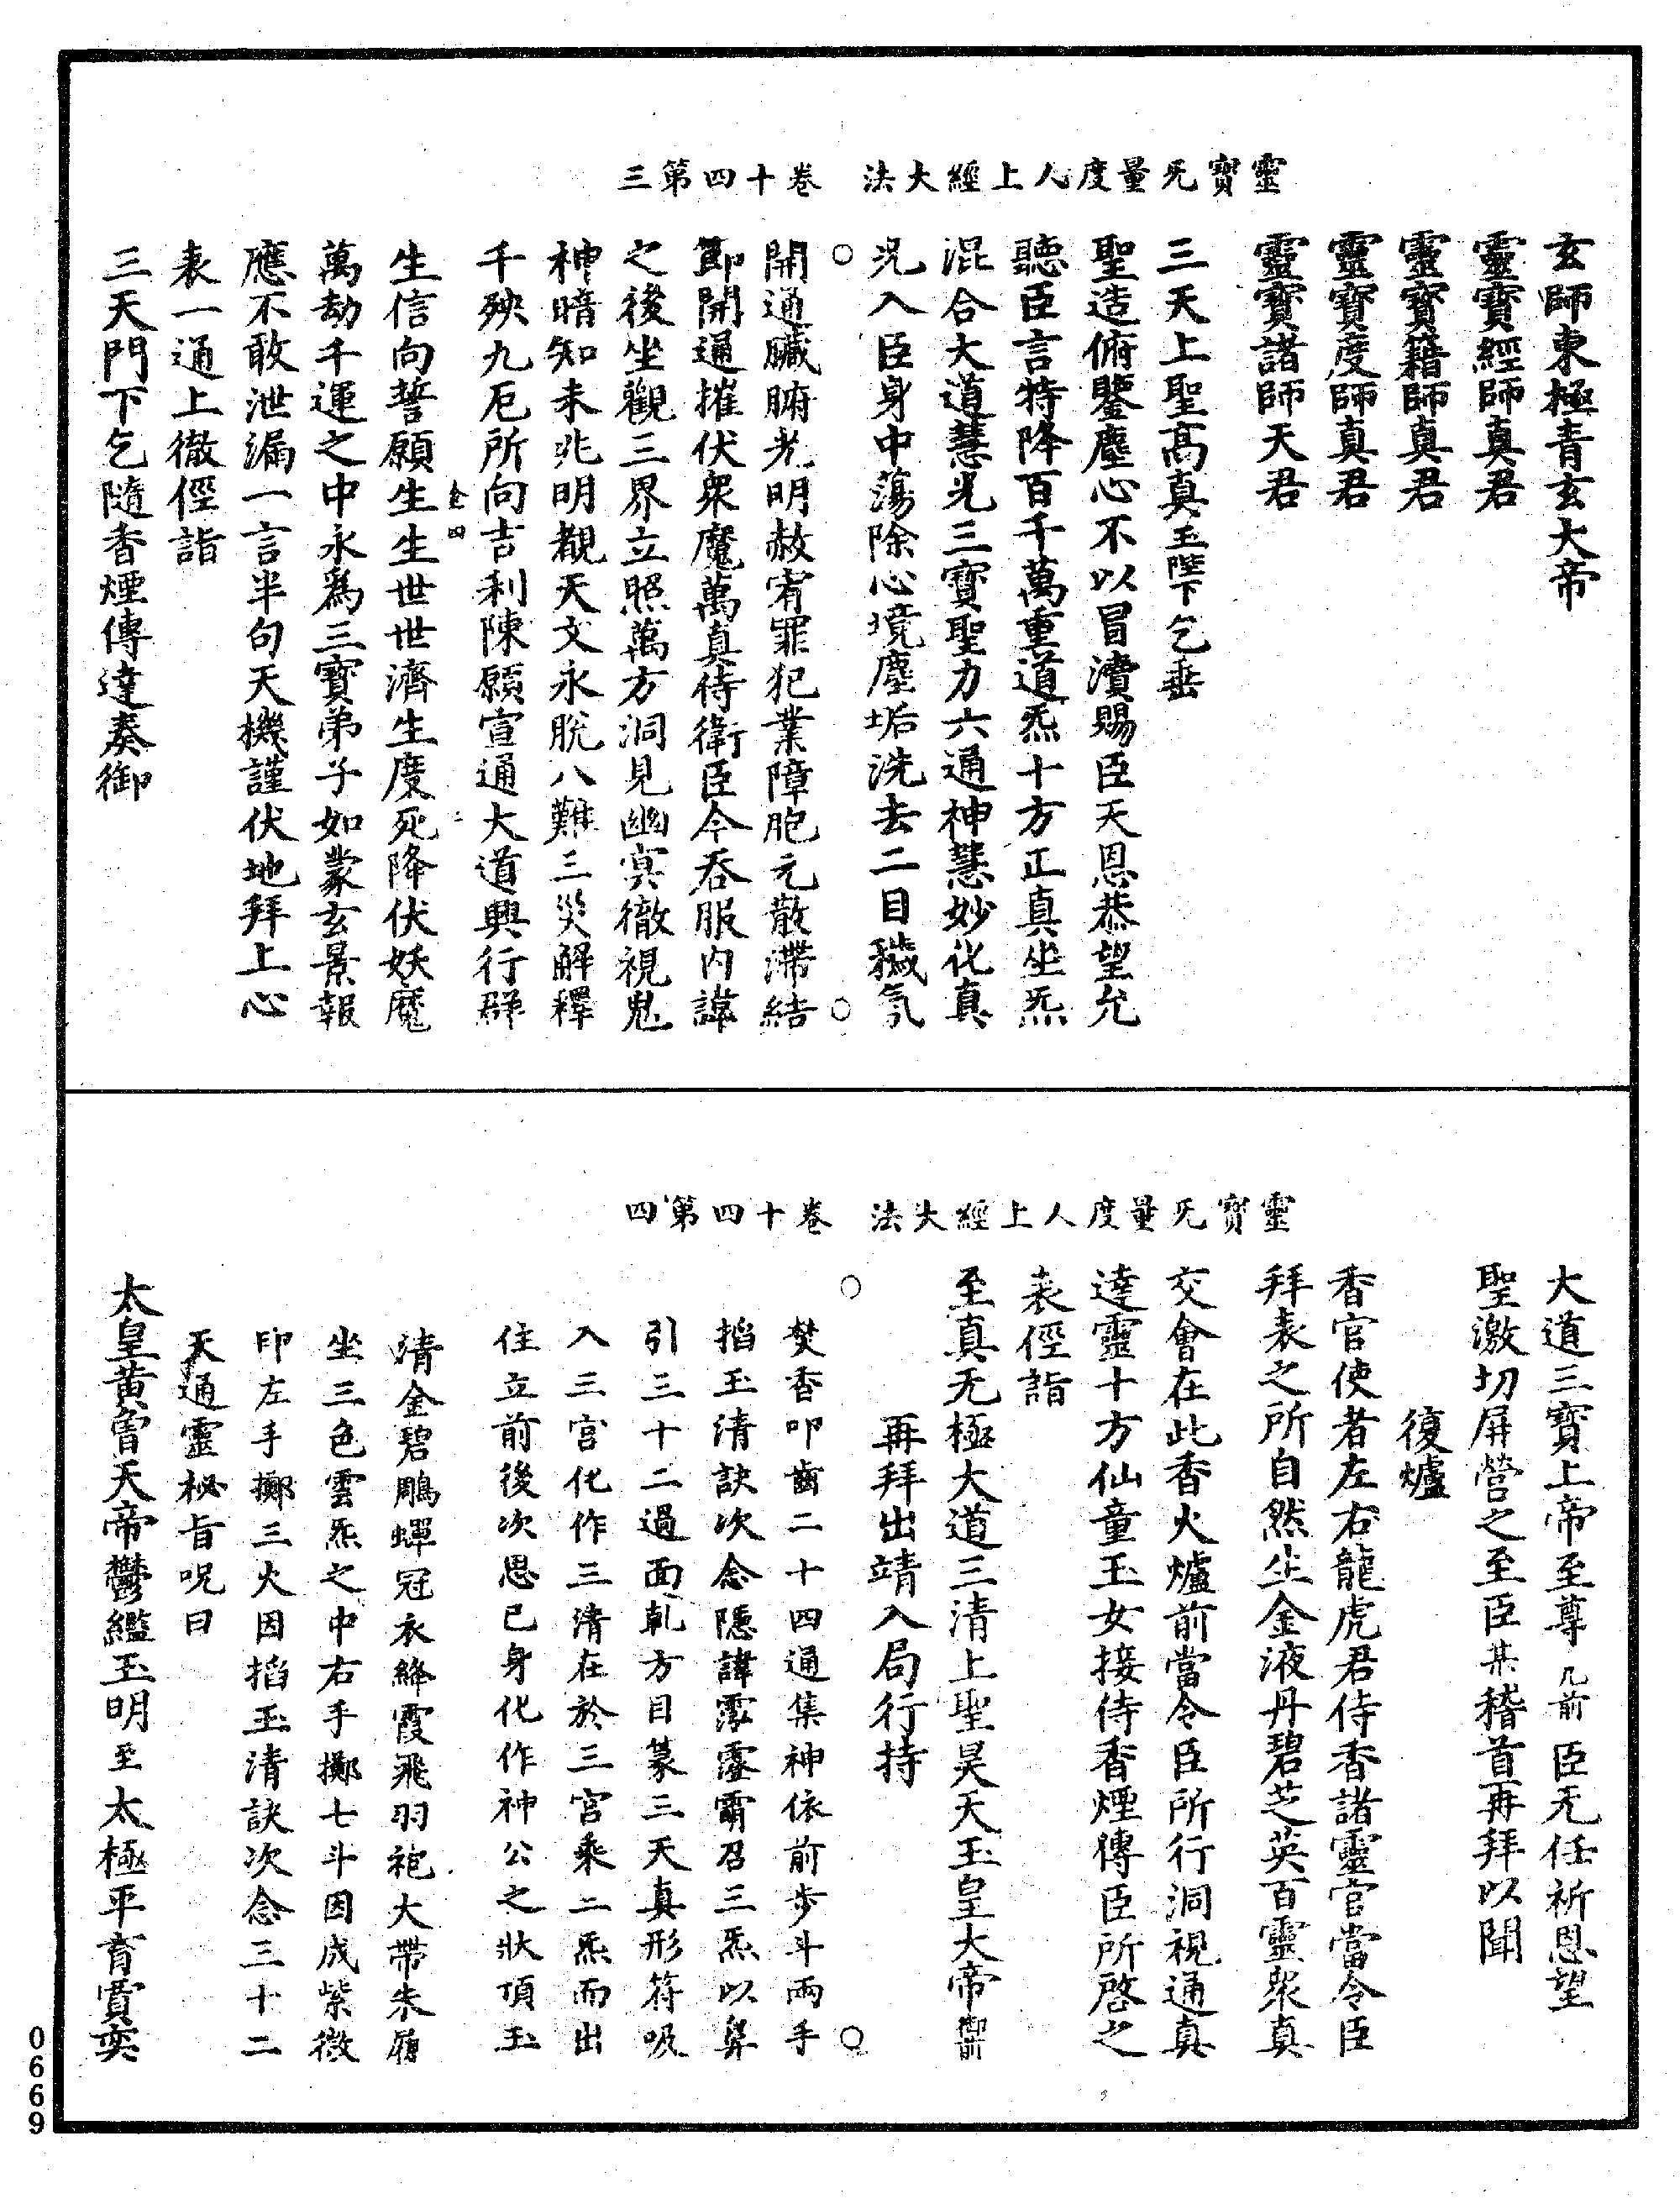 靈寶无量度人上經大法　卷十四第三
玄師東極青玄大帝
靈寶經師真君
靈寶籍師真君
靈寶度師真君
靈寶諸師天君
三天上聖高真玉陛下乞垂
聖造俯鑒塵心不以冒瀆賜臣天恩恭望允
聽臣言特降百千萬重道炁十方正真坐炁
混合大道慧光三寶聖力六通神慧妙化真
光入臣身中蕩除心境塵垢洗去二目穢氛
開通臟腑光明赦宥罪犯業障胞元散滯結
節開通摧伏眾魔萬真侍衛臣今吞服內諱
之後坐觀三界立照萬方洞見幽冥徹視鬼
神暗知未兆明覩天文永脫八難三災解釋
千殃九厄所向吉利陳願宣通大道興行群
生信向誓願生生世世濟生度死降伏妖魔
萬劫千運之中永為三寶弟子如蒙玄景報
應不敢泄漏一言半句天機謹伏地拜上心
表一通上徹俓詣
三天門下乞隨香煙傳達奏御
靈寶无量度人上經大法　卷十四第四
大道三寶上帝至尊几前臣无任祈恩望
聖激切屏營之至臣某稽首再拜以聞
復爐
香官使者左右龍虎君侍香諸靈官當令臣
拜表之所自然生金液丹碧芝英百靈眾真
交會在此香火爐前當令臣所行洞視通真
達靈十方仙童玉女接侍香煙傳臣所啓之
表俓詣
至真无極大道三清上聖昊天玉皇大帝御前
再拜出靖入局行持
焚香叩齒二十四通集神依前步斗兩手
搯玉清訣次念隱諱霐靈霱召三炁以鼻
引三十二過面乹方目篆三天真形符吸
入三宮化作三清在於三宮乘二炁而出
住立前後次思己身化作神公之狀頂玉
清金碧鵰蟬冠衣絳霞飛羽袍大帶朱履
坐三色雲炁之中右手擲七斗因成紫微
印左手擲三火因搯玉清訣次念三十二
天通靈秘旨呪曰
太皇黃曾天帝鬱繿玉明至太極平育賈奕
0669